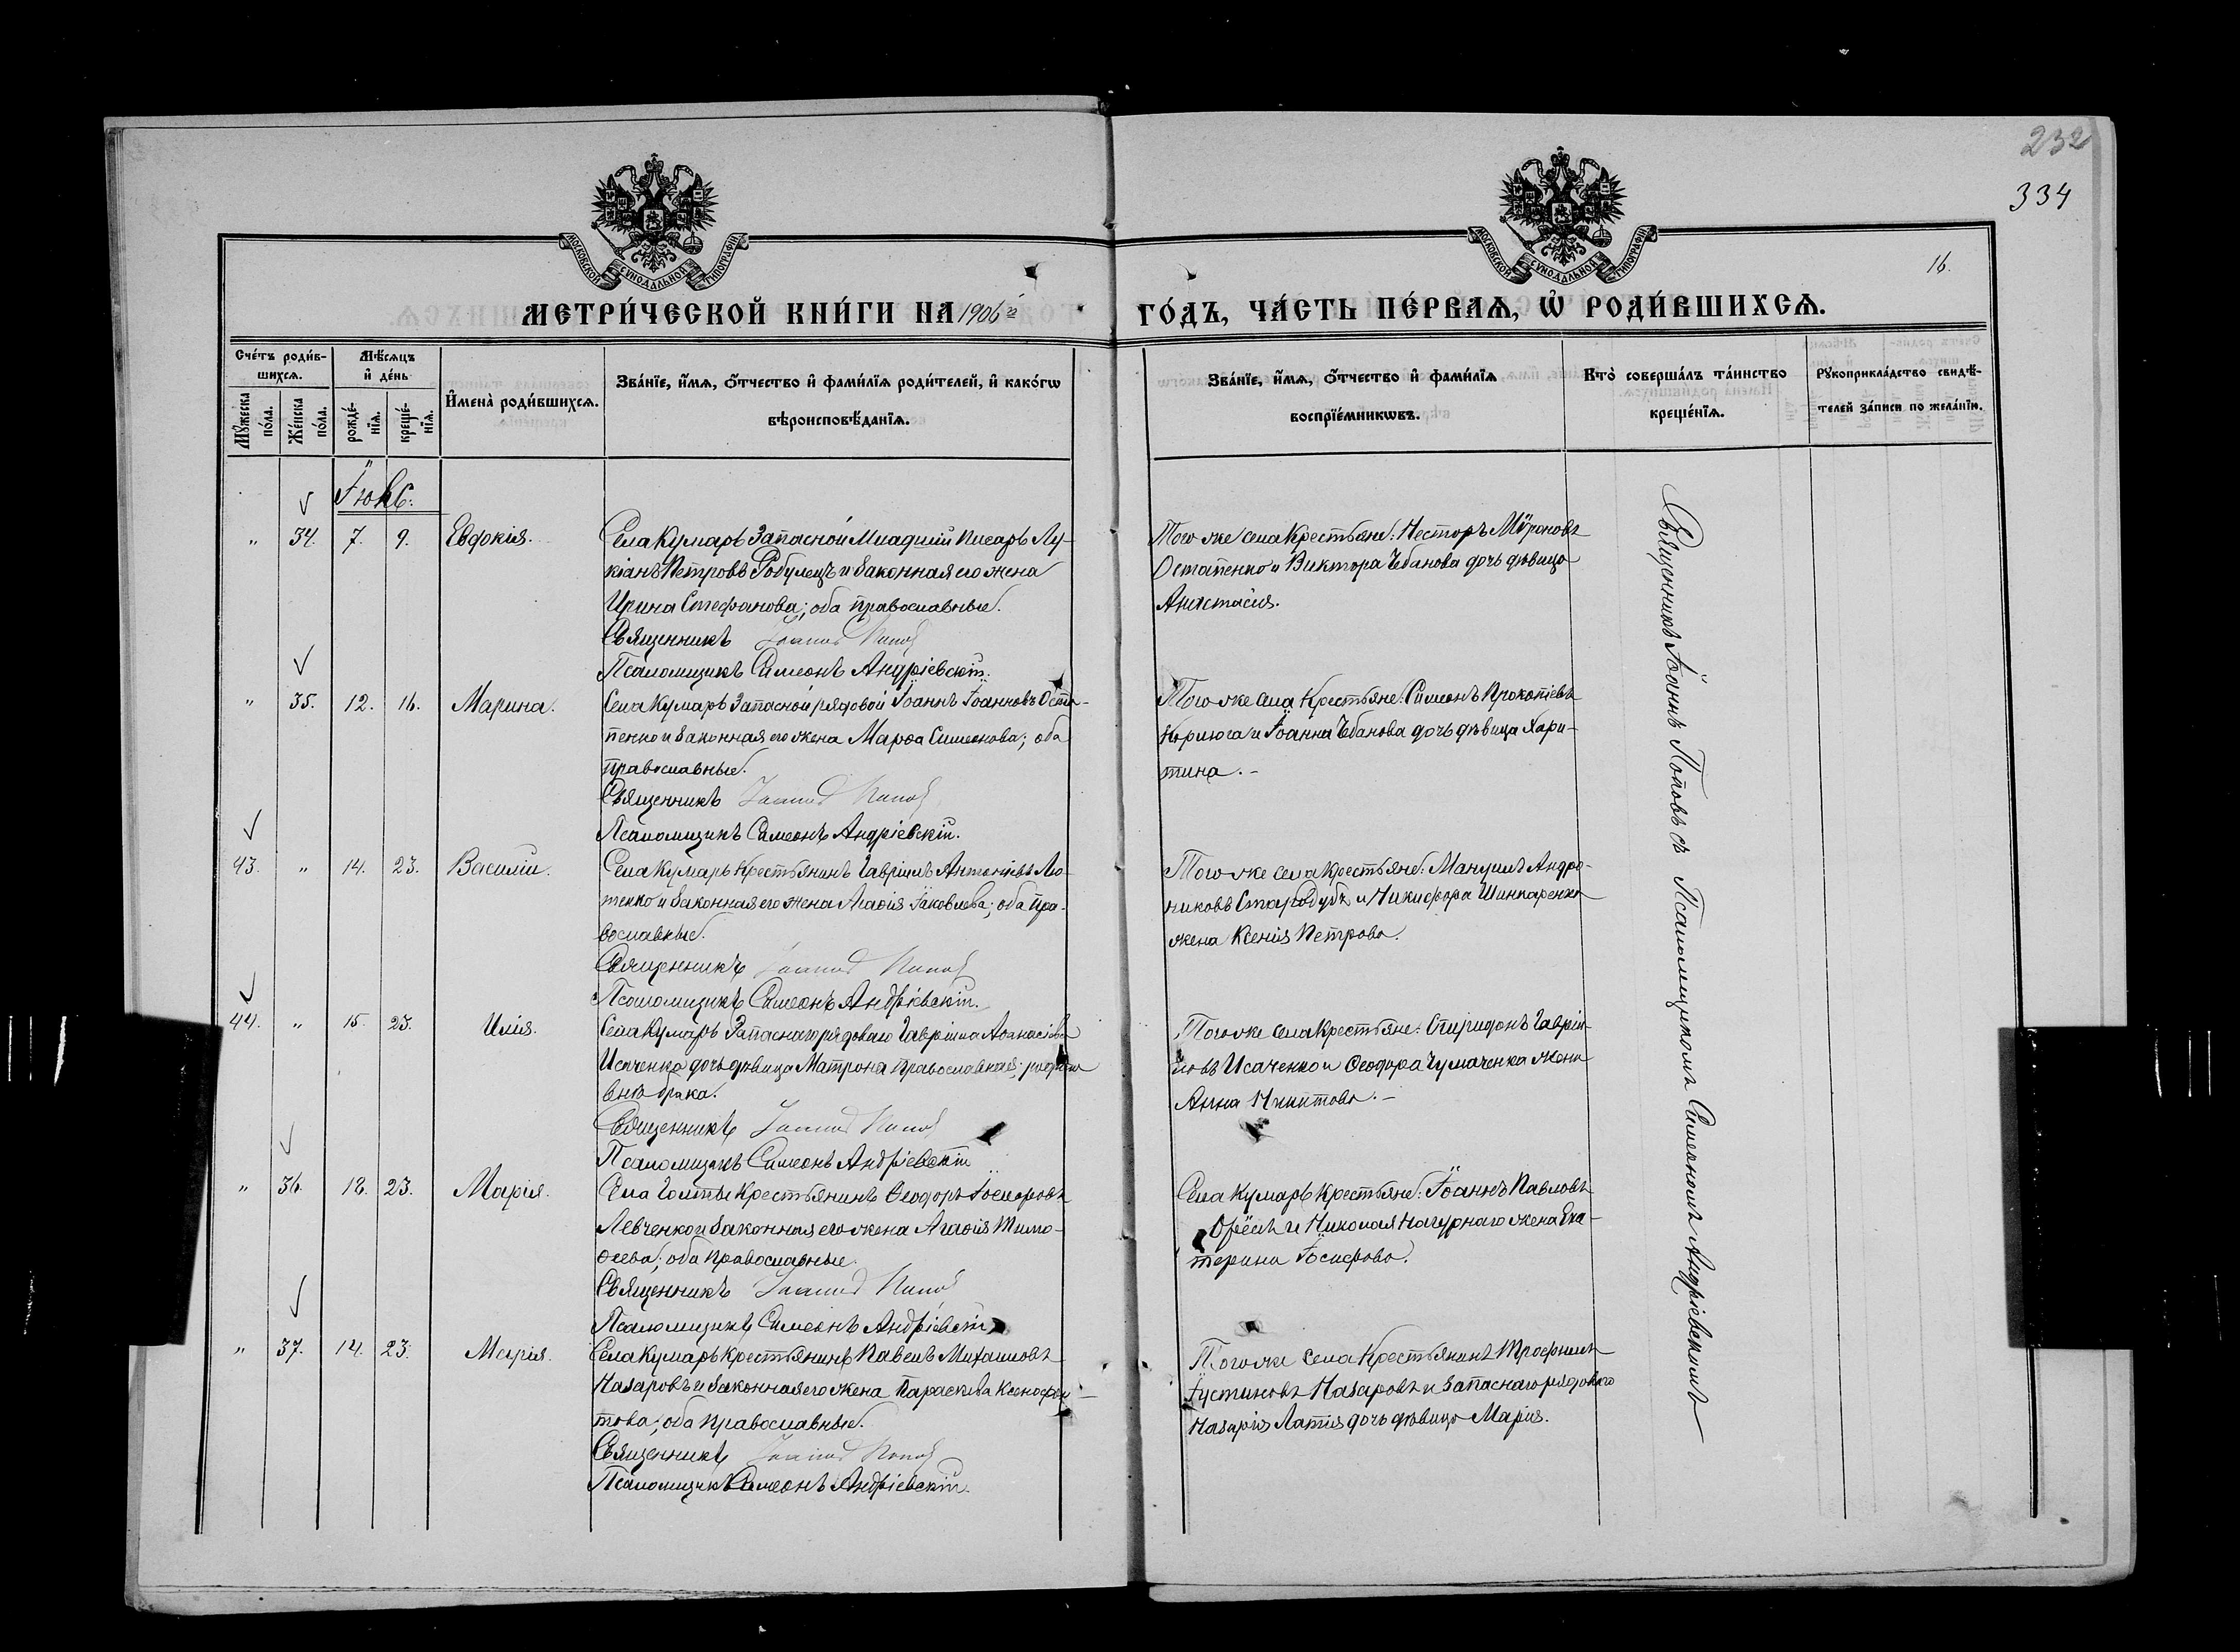 232
334
16.
МОСКОВСКОЙ СѴНОДАЛЬНОЙ ТИПОГРАФІИ
МОСКОВСКОЙ СѴНОДАЛЬНОЙ ТИПОГРАФІИ
МЕТРИ́ЧЕСКОЙ КНИ́ГИ НА 1906й
ГО́ДЪ, ЧА́СТЬ ПЕ́РВАѦ, Ѡ҆ РОДИ́ВШИХСѦ.
Сче́тъ роди́в-
шихсѧ.
Мꙋ́жеска по́ла.
Же́нска по́ла.
Мѣ́сѧцъ
и҆ де́нь
рожде́-
нїѧ.
креще́-
нїѧ.
И҆мена̀ роди́вшихсѧ.
Зва́нїе, и҆́мѧ, ѻ҆́тчество и҆ фами́лїѧ роди́телей, и҆ како́гѡ
вѣроисповѣ́данїѧ.
Зва́нїе, и҆́мѧ, ѻ҆́тчество и҆ фами́лїѧ
воспрїе́мникѡвъ.
Кто̀ соверша́лъ та́инство
креще́нїѧ.
Рꙋкоприкла́дство свидѣ́-
телей за́писи по жела́нїю.
Іюнь.
" 34. 7. 9. Евдокія.
Села Кумаръ Запасной Младшій Писарь Лу-
кіанъ Петровъ и законная его жена
Ирина Стефанова; оба православные.
Священникъ Іоаннъ Поповъ
Псаломщикъ Симеонъ Андріевскій.
Того же села Крестьяне: Несторъ Мѵроновъ
Остапенко и Виктора Чебанова дочь дѣвица
Анастасія.
" 35. 12. 16. Марина.
Села Кумаръ Запасной рядовой Іоаннъ Іоанновъ Оста-
пенко и законная его жена Марѳа Симеонова; оба
православные.
Священникъ Іоаннъ Поповъ
Псаломщикъ Симеонъ Андріевскій.
Того же села Крестьяне: Симеонъ Прокопіевъ
и Іоанна Чебанова дочь дѣвица Хари-
тина. -
43. " 14. 23. Василій.
Села Кумаръ Крестьянинъ Гавріилъ Антоніевъ Лю-
тенко и законная его жена Агаѳія Іаковлева; оба пра-
вославные.
Священникъ Іоаннъ Поповъ
Псаломщикъ Симеонъ Андріевскій.
Того же села Крестьяне: Мануилъ Андро-
никовъ Стародубъ и Никифора Шинкаренка
жена Ксенія Петрова.
44. " 15. 23. Илія.
Села Кумаръ Запаснаго рядоваго Гавріила Аѳанасіева
Исаченка дочь дѣвица Матрона православная;
внѣ брака.
Священникъ Іоаннъ Поповъ
Псаломщикъ Симеонъ Андріевскій
Того же села Крестьяне: Спиридонъ Гаврі-
иловъ Исаченко и Ѳеодора Чумаченка жена
Анна Никитова. -
" 36. 18. 23. Марія.
Села Крестьянинъ Ѳеодоръ Іосифовъ
Левченко и законная его жена Агаѳія Тимо-
ѳеева; оба православные.
Священникъ Іоаннъ Поповъ
Псаломщикъ Симеонъ Андріевскій
Села Кумаръ Крестьяне: Іоаннъ Павловъ
и Николая жена Ека-
терина Іосифова.
" 37. 14. 23. Марія.
Села Кумаръ Крестьянинъ Павелъ Михаиловъ
Назаровъ и законная его жена Параскева Ксенофон-
това; оба православные.
Священникъ Іоаннъ Поповъ
Псаломщикъ Симеонъ Андріевскій.
Того же села Крестьянинъ Трофимъ
Іустиновъ Назаровъ и запаснаго рядового
Назарія дочь дѣвица Марія.
Священникъ Іоаннъ Поповъ съ Псаломщикомъ Симеономъ Андріевскимъ